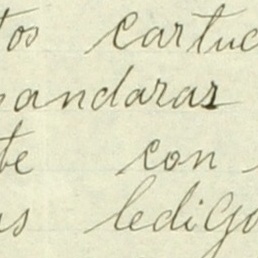 tos cartuc
andaras
te con
as ledigo